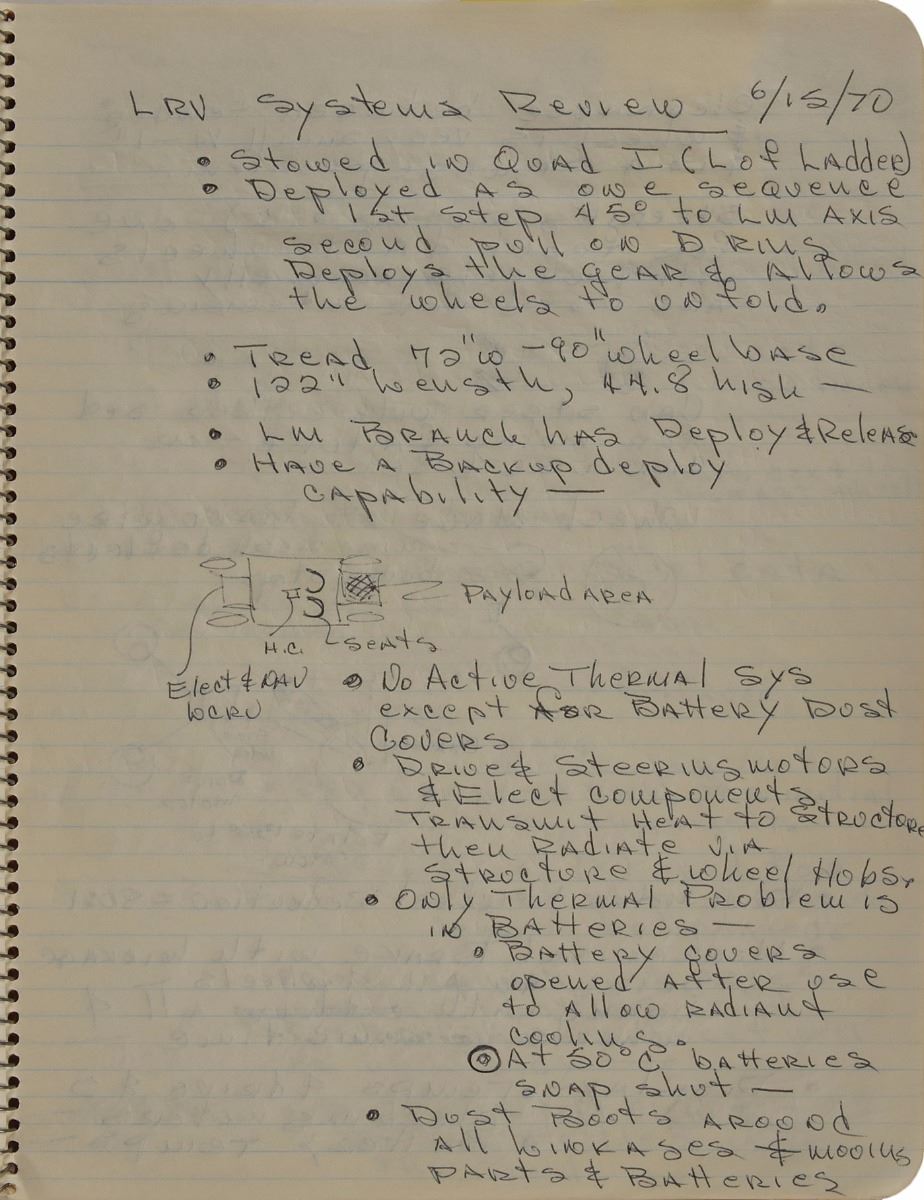 LRV Systems Review 6/15/70
• Stowed in Quad I (L of Ladder)
• Deployed as one sequence
1st step 45° to LM Axis
second pull on D Ring
Deploys the gear & Allows
the wheels to unfold.
• Tread 72"w - 90" wheel base
• 122" Length, 44.8 high —
• LM Branch has Deploy & Release
• Have a Backup deploy
capability —
Payload area
H.C. seats
Elect & NAV
LCRU
• No Active Thermal Sys
except for Battery Dust
Covers
• Drive & Steering motors
& Elect components
Transmit Heat to Structure
then Radiate via
Structure & wheel Hubs.
• Only Thermal Problem is
in Batteries —
• Battery covers
opened after use
to allow radiant
cooling.
• At 50°C batteries
snap shut —
• Dust Boots around
all linkages & moving
parts & Batteries